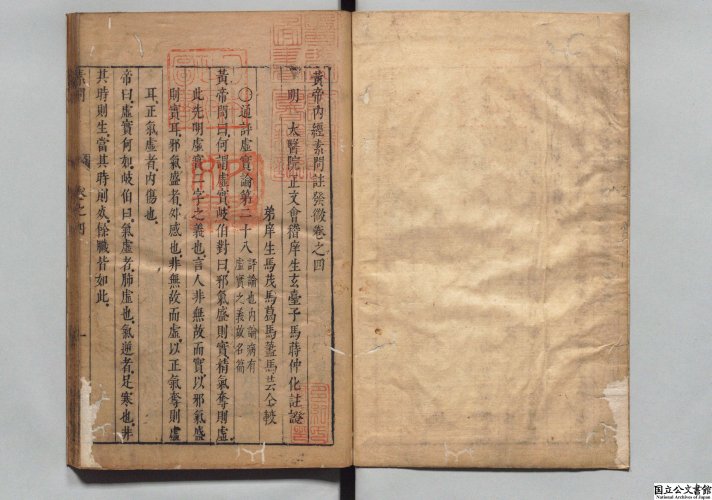 黃帝內經素問註證發微卷之四
明 太醫院正文會稽庠生玄臺子馬蒔仲化註證
弟庠生馬茂馬葛馬蓋馬芸仝較
○通評虛實論第二十八 評論也內論病有虛實之義故名篇
黃帝問曰何謂虛實岐伯對曰邪氣盛則實精氣奪則虛
此先明虛實二字之義也言人非無故而實以邪氣盛
則實耳邪氣盛者外感也非無故而虛以正氣奪則虛
耳正氣虛者內傷也
帝曰虛實何如岐伯曰氣虛者肺虛也氣逆者足寒也非
其時則生當其時則死餘臟皆如此
素問
卷之四
一
国立公文書館
National Archives of Japan